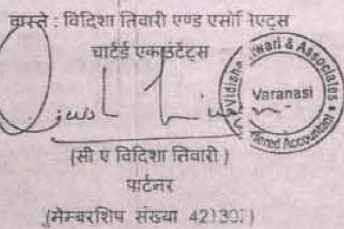 वास्ते : विदिशा तिवारी एण्ड एसोसिएट्स
चार्टर्ड एकाउंटेंट्स
Vidisha Tiwari & Associates
Varanasi
Chartered Accountant
(सी ए विदिशा तिवारी )
पार्टनर
(मेम्बरशिप संख्या 421307)